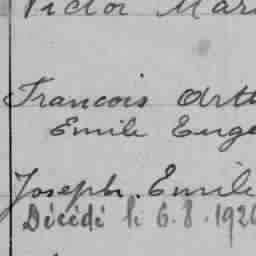 Victor Mari
François Arth
Emile Euge
Joseph. Emile
Décédé le 6.8.1926